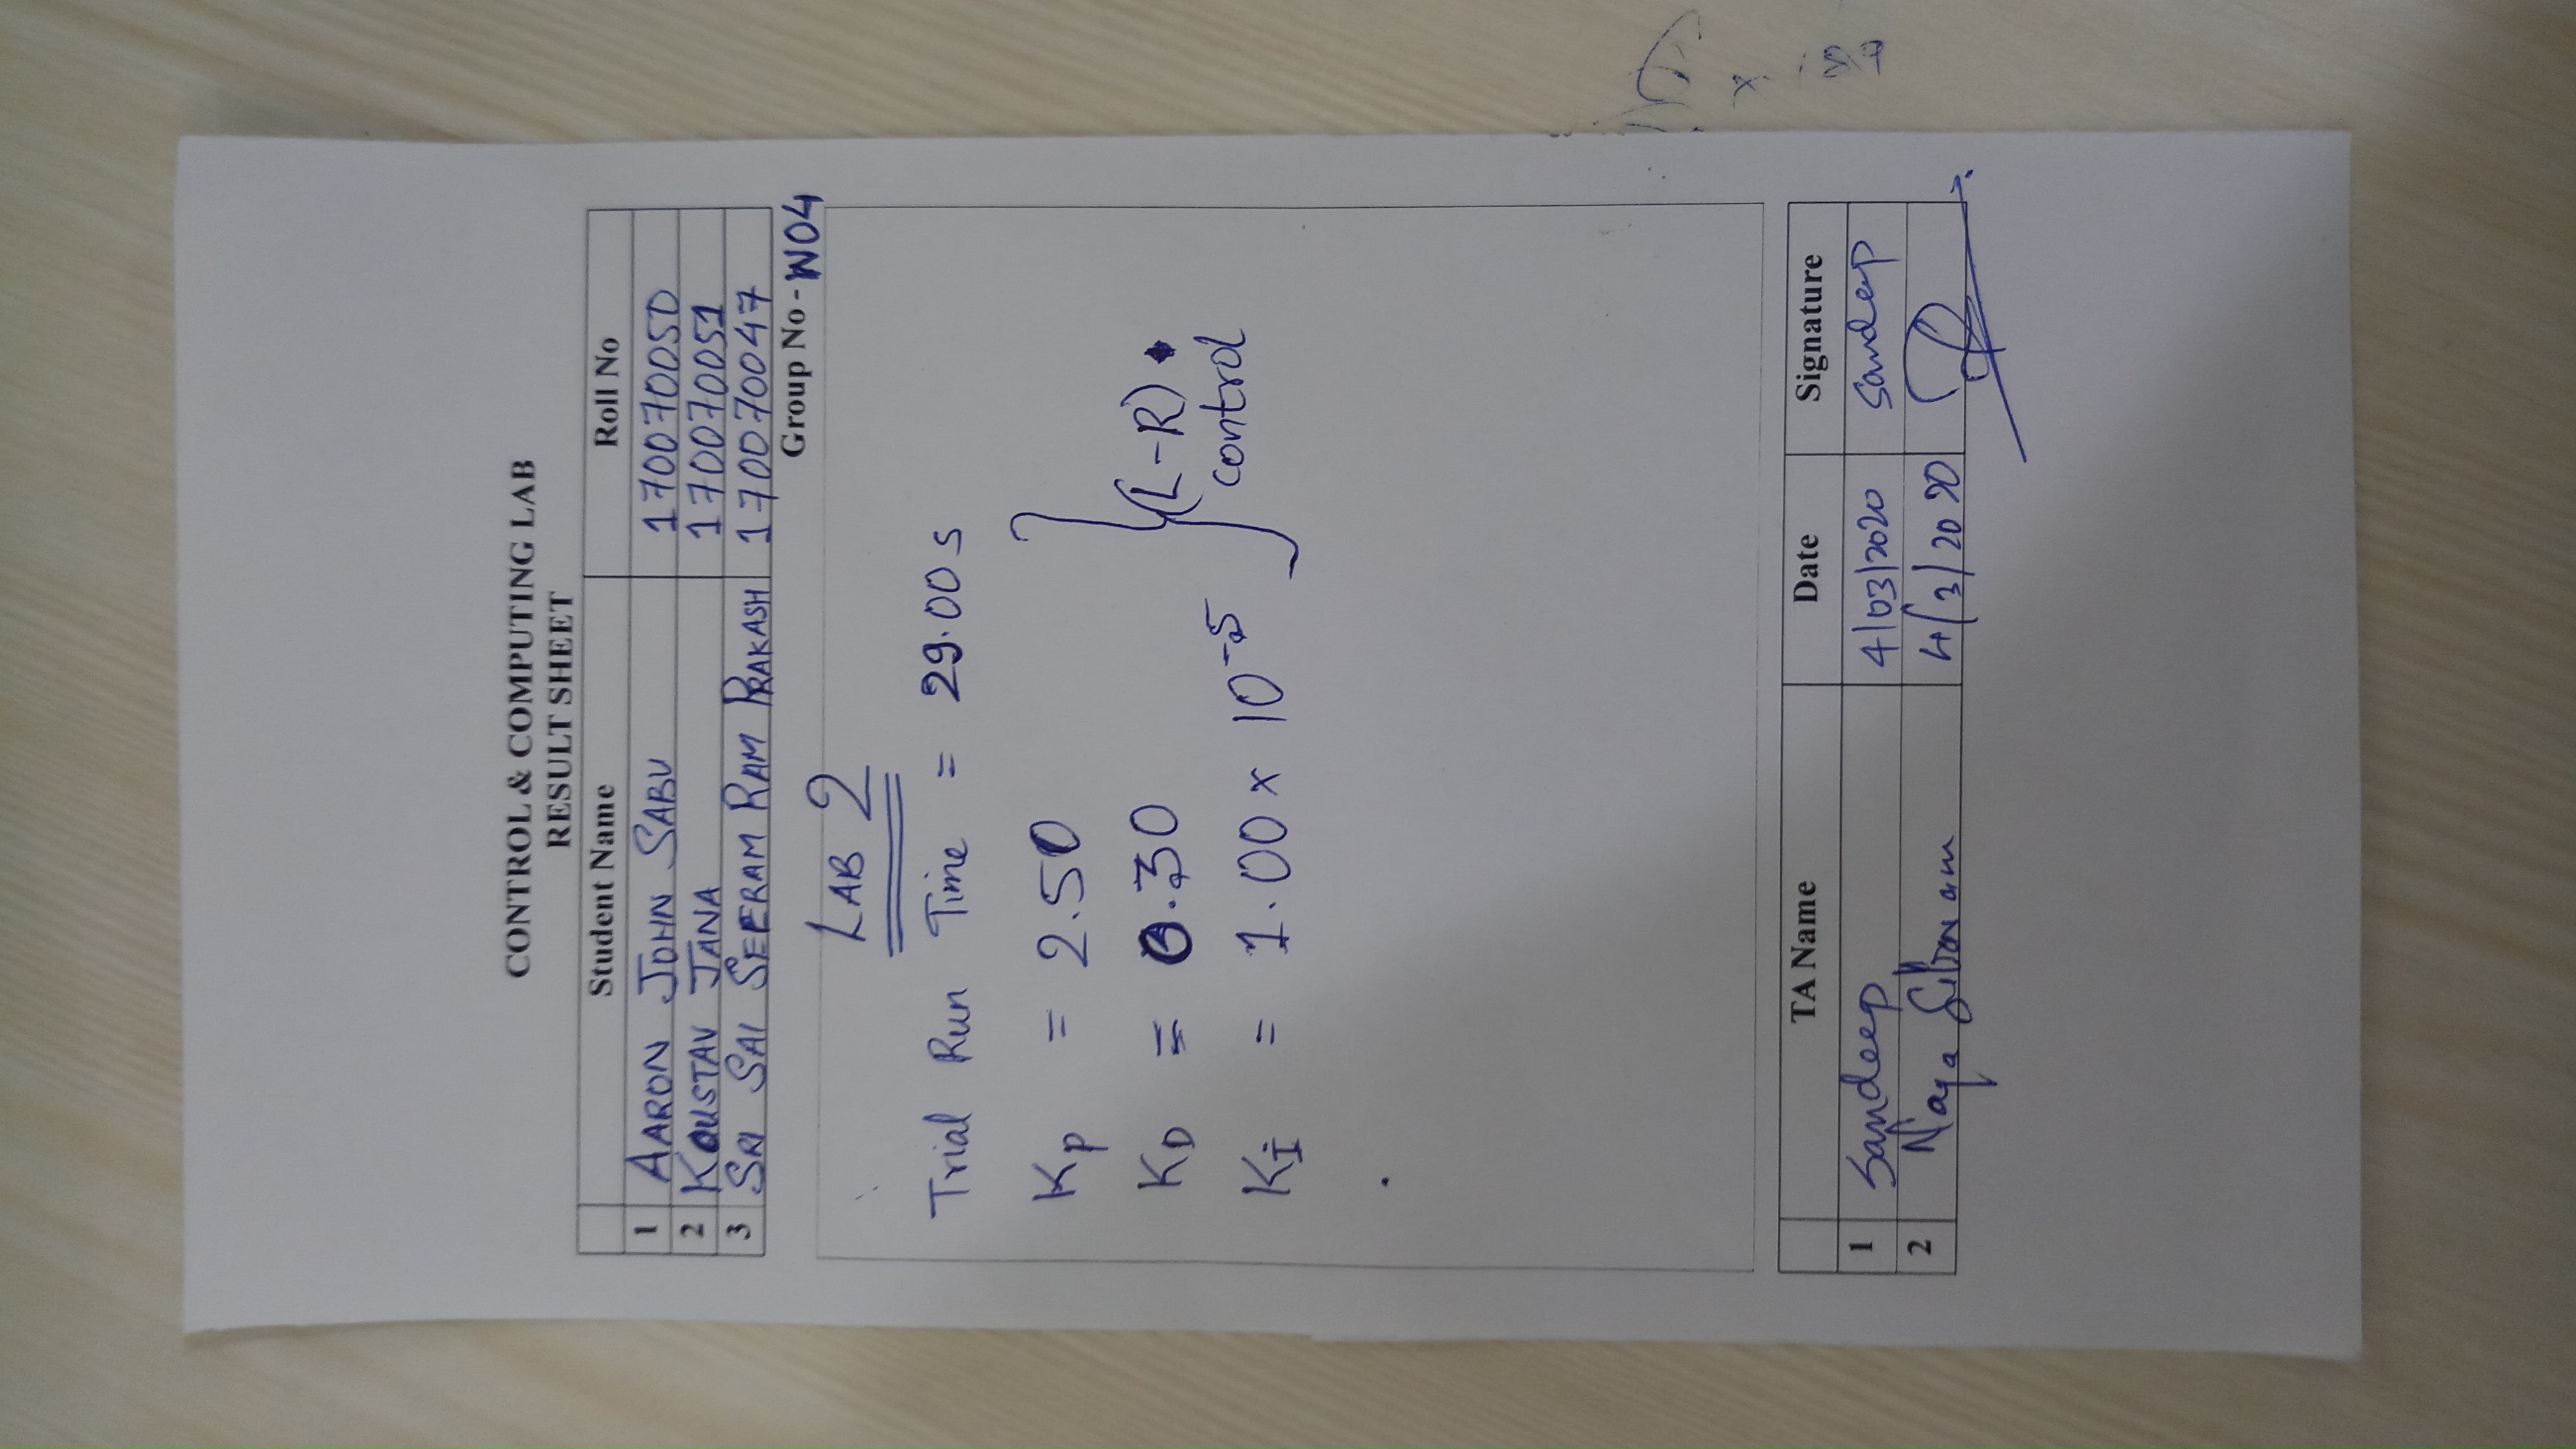 CONTROL & COMPUTING LAB
RESULT SHEET
Student Name Roll No
1 AARON JOHN SABU 170070050
2 KOUSTAV JANA 170070051
3 SRI SAI SEERAM RAM PRAKASH 170070047
Group No - W04
LAB 2
Trial Run Time = 29.00 s
Kp = 2.50
KD = 0.30
(L-R)
control
KI = 1.00 x 10^-5
TA Name Date Signature
1 Sandeep 4/03/2020 Sandeep
2 Naga 4/3/2020